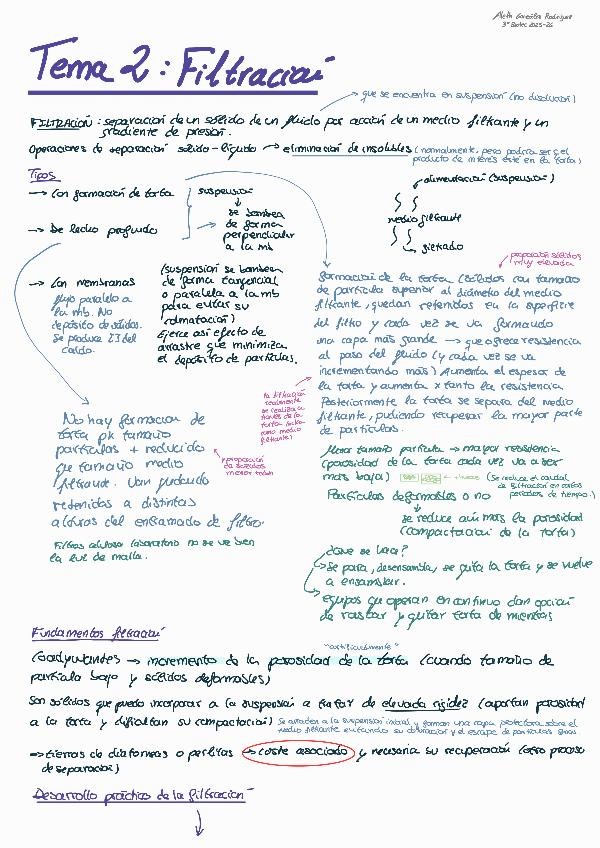 Aleth González Rodríguez
3º Biotec 2025-26
Tema 2: Filtración
que se encuentra en suspensión (no disolución)
FILTRACIÓN: separación de un sólido de un fluido por acción de un medio filtrante y un
gradiente de presión.
Operaciones de separación sólido-líquido → eliminación de insolubles (normalmente, pero podría ser q el
producto de interés esté en la torta)
Tipos
→ Con formación de torta
→ De lecho profundo
suspensión
↓
se bombea
de forma
perpendicular
a la mb
alimentación (suspensión)
medio filtrante
filtrado
→ Con membranas
flujo paralelo a
la mb. No
depósito de sólidos.
Se produce
caldo.
(suspensión se bombea
de forma tangencial
o paralela a la mb
para evitar su
colmatación)
Ejerce así efecto de
arrastre que minimiza
el depósito de partículas.
proporción sólidos
muy elevada
formación de la torta (sólidos con tamaño
de partícula superior al diámetro del medio
filtrante, quedan retenidos en la superficie
del filtro y cada vez se va formando
una capa más grande → que ofrece resistencia
al paso del fluido (y cada vez se va
incrementando más) Aumenta el espesor de
la torta y aumenta x tanto la resistencia
Posteriormente la torta se separa del medio
filtrante, pudiendo recuperar la mayor parte
de partículas.
la filtración
realmente
se realiza a
través de la
torta
como medio
filtrante)
No hay formación de
torta pk tamaño
partículas + reducido
que tamaño medio
filtrante. Van quedando
retenidas a distintas
alturas del entramado de filtro.
proporción
de sólidos
menor
Filtros celulosa laboratorio no se ve bien
la luz de malla.
Menor tamaño partícula → mayor resistencia
(porosidad de la torta cada vez va a ser
más baja)
(Se reduce el caudal
de filtración en cortos
periodos de tiempo.)
Partículas deformables o no
↓
se reduce aún más la porosidad
(compactación de la torta)
¿Qué se hace?
→ Se para, desensambla, se quita la torta y se vuelve
a ensamblar.
→ equipos que operan en continuo dan opción
de rascar y quitar torta de mientras
Fundamentos filtración
"artificialmente"
Coadyuvantes → incremento de la porosidad de la torta (cuando tamaño de
partícula bajo y sólidos deformables)
Son sólidos que puedo incorporar a la suspensión a tratar de elevada rigidez (aportan porosidad
a la torta y dificultan su compactación) Se añaden a la suspensión inicial y forman una capa protectora sobre el
medio filtrante evitando su obturación y el escape de partículas finas.
→ tierras de diatomeas o perlitas → coste asociado y necesaria su recuperación (otro proceso
de separación)
Desarrollo práctico de la filtración
↓